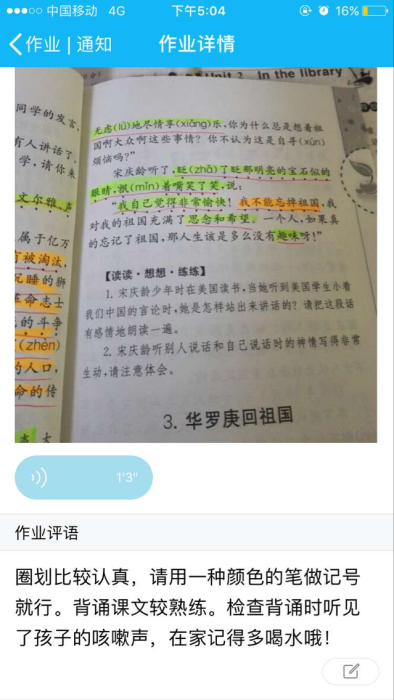 中国移动 4G 下午5:04 16%
作业 | 通知 作业详情
Unit 2 In the library
同学的发言,
有人讲话了
学,请你来
文尔雅,声
属于亿万
有被淘汰,
沉睡的狮
革命志士
的斗争
(zhèn)
的人口,
命的传
无虑(lǜ)地尽情享(xiǎng)乐,你为什么总是想着祖
国啊大众啊这些事情?你不认为这是自寻(xún)
烦恼吗?”
宋庆龄听了,眨(zhǎ)了眨那明亮的宝石似的
眼睛,抿(mǐn)着嘴笑了笑,说:
“我自己觉得非常愉快!我不能忘掉祖国,我
对我的祖国充满了思念和希望。一个人,如果真
的忘记了祖国,那人生该是多么没有趣味呀!”
【读读·想想·练练】
1. 宋庆龄少年时在美国读书,当她听到美国学生小看
我们中国的言论时,她是怎样站出来讲话的?请把这段话
有感情地朗读一遍。
2. 宋庆龄听别人说话和自己说话时的神情写得非常
生动,请注意体会。
3. 华罗庚回祖国
1'3"
作业评语
圈划比较认真,请用一种颜色的笔做记号
就行。背诵课文较熟练。检查背诵时听见
了孩子的咳嗽声,在家记得多喝水哦!